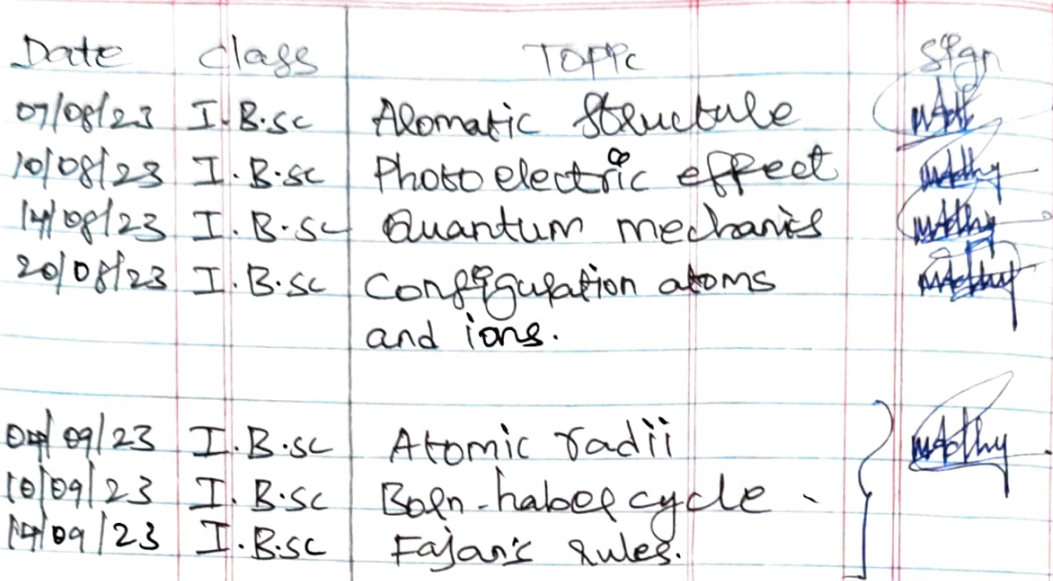 Date Class Topic Sign
07/08/23 I.B.sc Alomatic Structure
10/08/23 I.B.sc Photo electric effect
14/08/23 I.B.sc Quantum mechanics
20/08/23 I.B.sc Configuration atoms
and ions.
04/09/23 I.B.sc Atomic radii
10/09/23 I.B.sc Born-haber cycle
14/09/23 I.B.sc Fajan's rules.